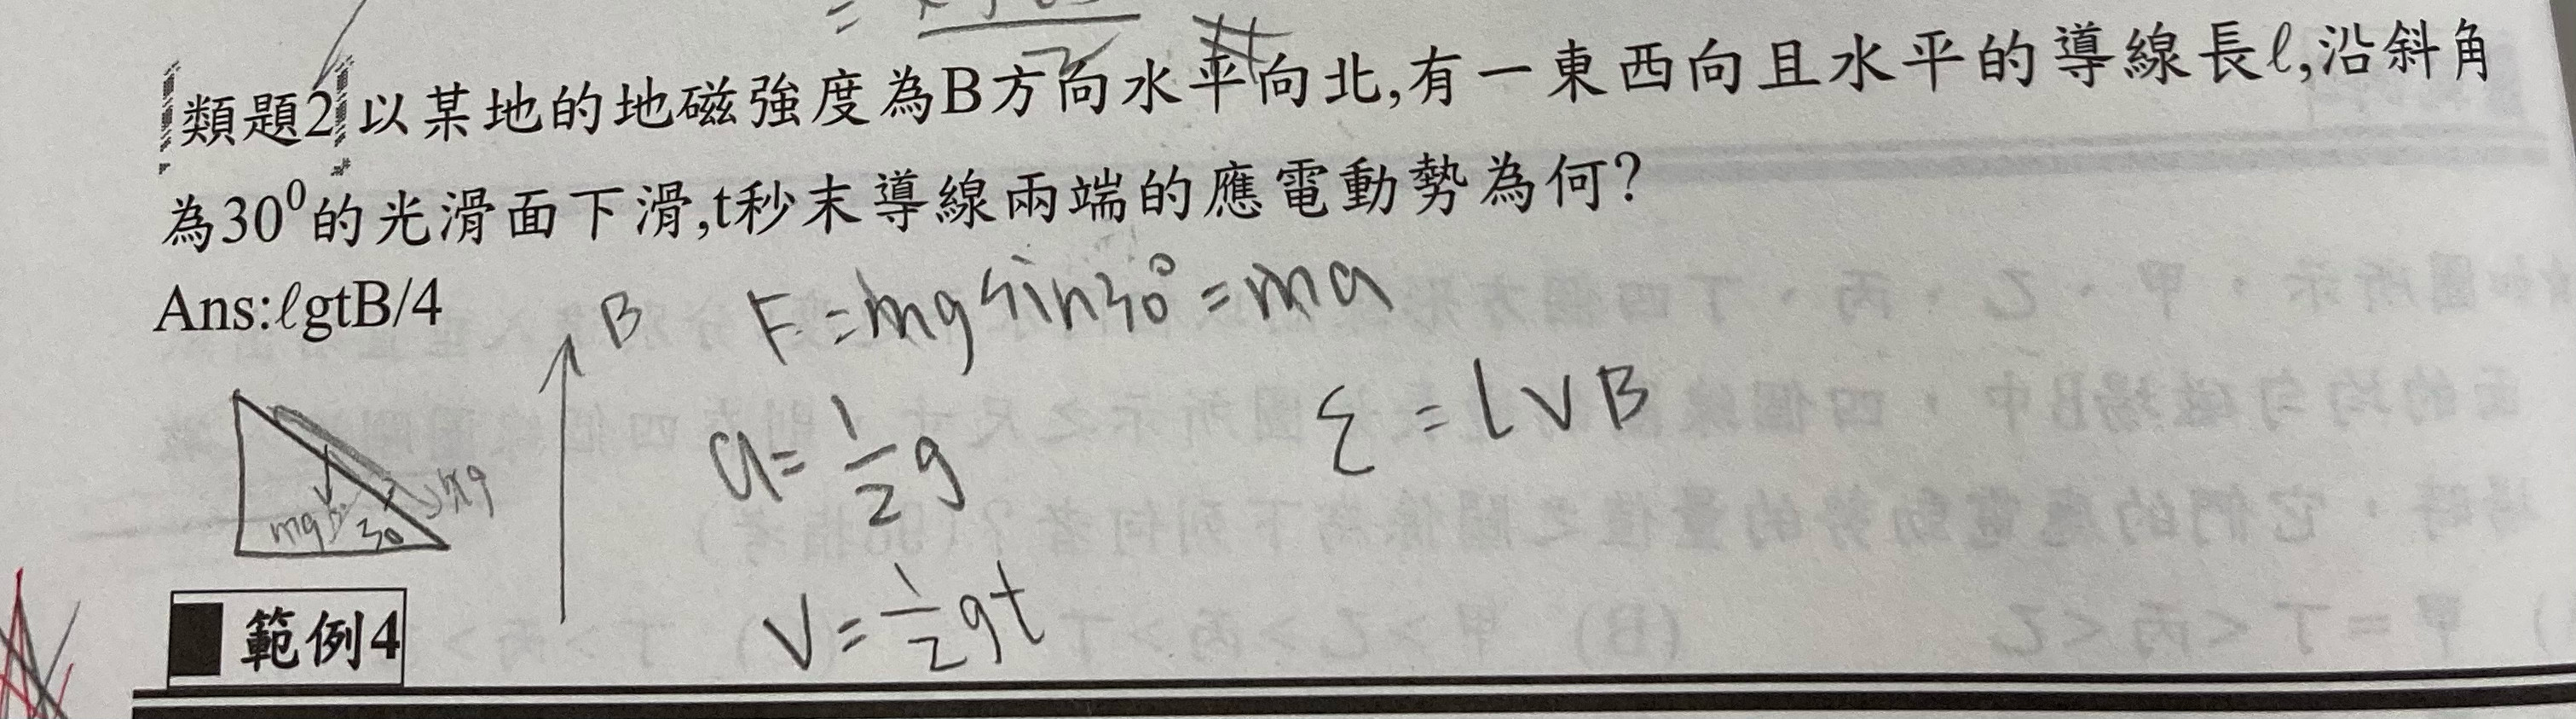 類題2 以某地的地磁強度為B方向水平向北,有一東西向且水平的導線長ℓ,沿斜角
為30⁰的光滑面下滑,t秒末導線兩端的應電動勢為何?
Ans:ℓgtB/4
B
F=mg sin30°=ma
a=1/2 g
ε=lVB
mg
30
V=1/2 gt
範例4